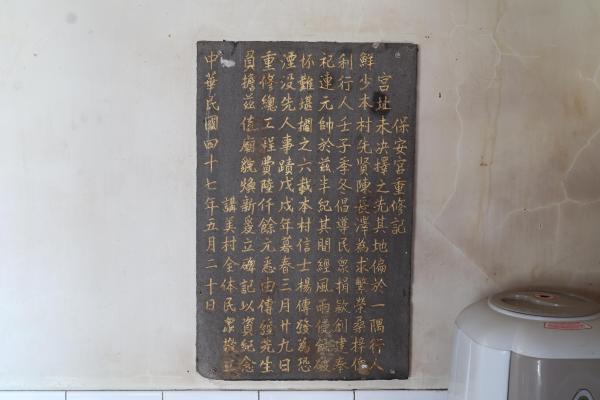 保安宮重修記
宮址未決擇之先其地偏於一隅行人
鮮少本村先賢陳長澤為求繁榮桑梓便
利行人壬子季冬倡導民眾捐款創建奉
祀連元帥於茲半紀其間經風雨侵蝕破
坏難堪擱之六載本村信士楊傳發為恐
湮没先人事蹟戊戌年暮春三月廿九日
重修總工程費陸仟餘元悉由傳發先生
負擔茲值廟貌煥新爰立碑記以資紀念
講美村全体民眾敬立
中華民國四十七年五月二十日